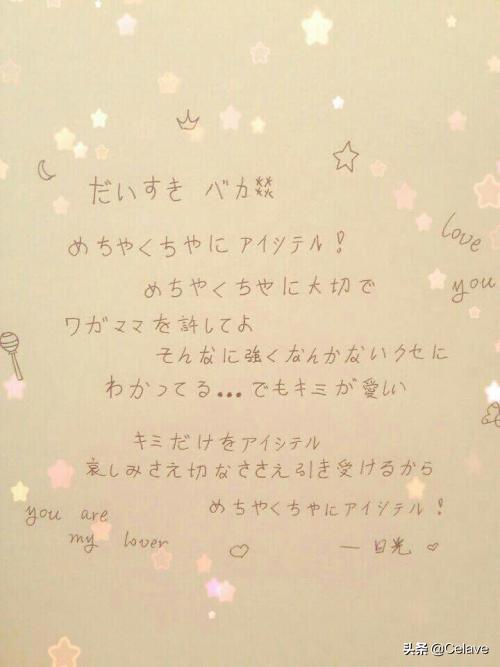 だいすき バカ
めちゃくちゃにアイシテル!
love
you
めちゃくちゃに大切で
ワガママを許してよ
そんなに強くなんかないクセに
わかってる...でもキミが愛しい
キミだけをアイシテル
哀しみさえ切なささえ引き受けるから
めちゃくちゃにアイシテル!
you are
my lover
一 日光
头条 @Celave